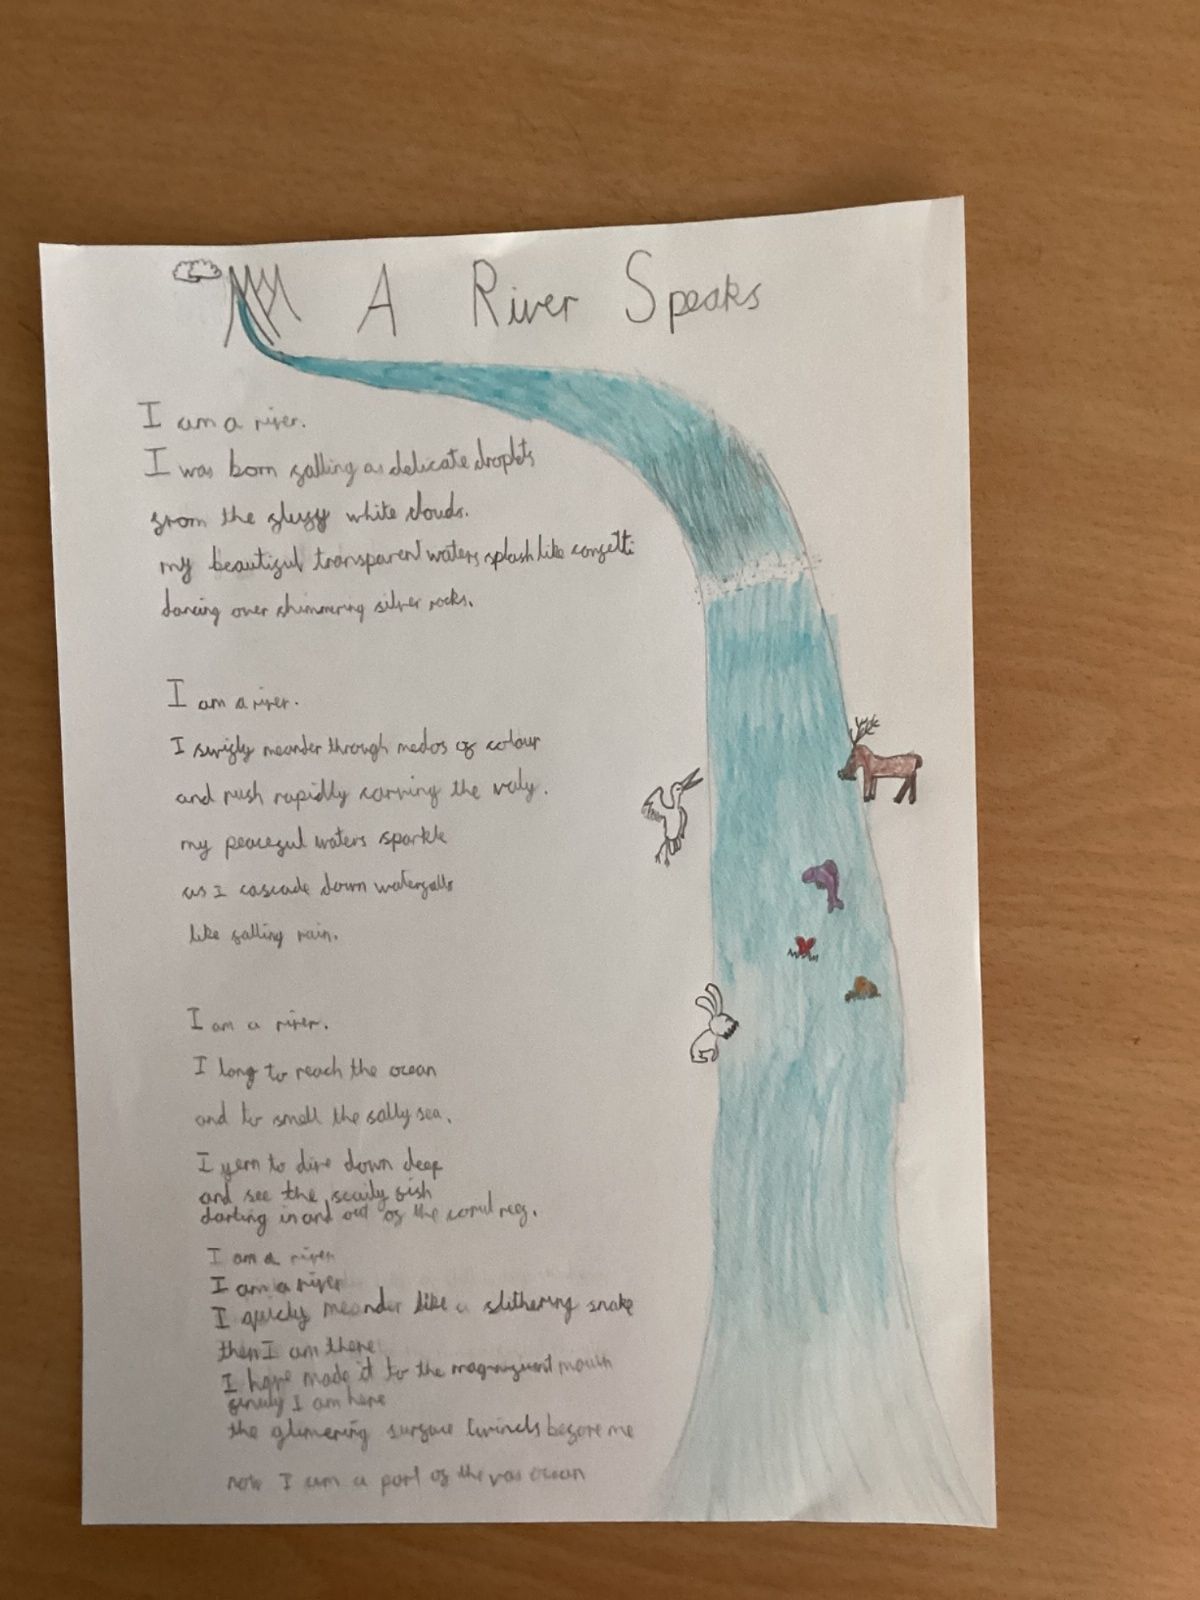 A River Speaks
I am a river.
I was born falling as delicate droplets
from the flufy white clouds.
my beautiful transparent waters splash like confetti
dancing over shimmering silver rocks.
I am a river.
I swifly meander through medos of colour
and rush rapidly carving the valy.
my peaceful waters sparkle
as I cascade down waterfalls
like falling rain.
I am a river.
I long to reach the ocean
and to smell the salty sea.
I yern to dive down deep
and see the scaily fish
darting in and out of the corul reef.
I am a river
I am a river
I quicly meander like a slithering snake
then I am there
I have made it to the magnificent mouth
finuly I am here
the glimering surface before me
now I am a part of the vas ocean